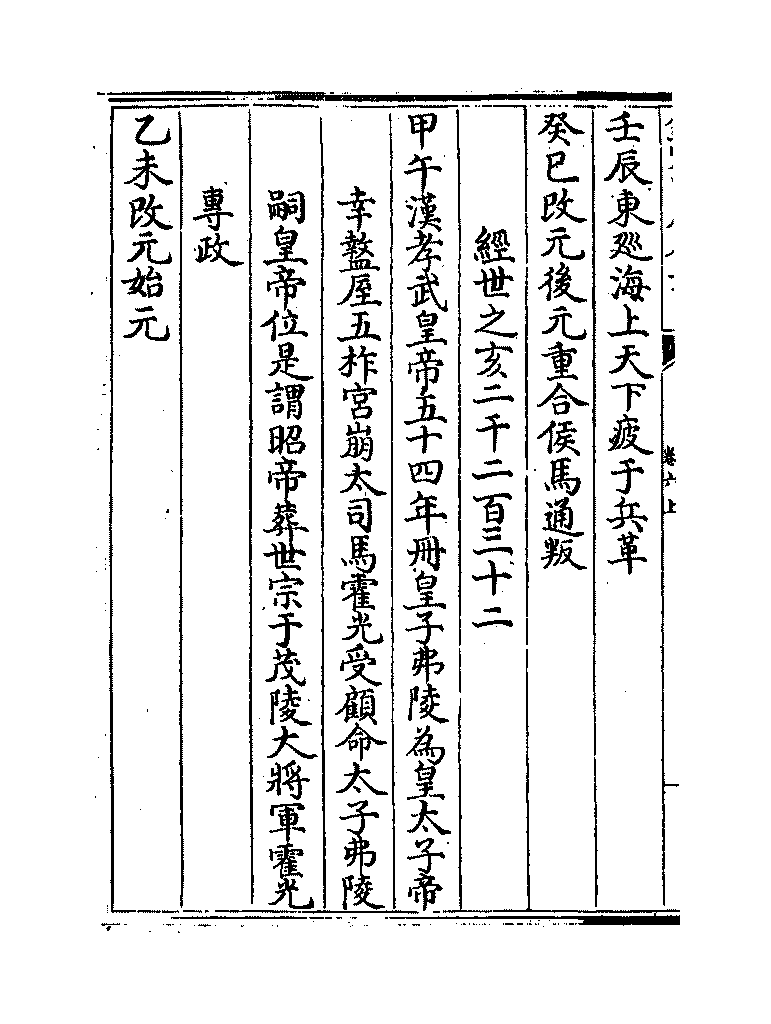 壬辰東廵海上天下疲于兵革
癸巳改元後元重合侯馬通叛
經世之亥二千二百三十二
甲午漢孝武皇帝五十四年冊皇子弗陵為皇太子帝
幸盩厔五柞宮崩太司馬霍光受顧命太子弗陵
嗣皇帝位是謂昭帝葬世宗于茂陵大將軍霍光
專政
乙未改元始元
卷六上